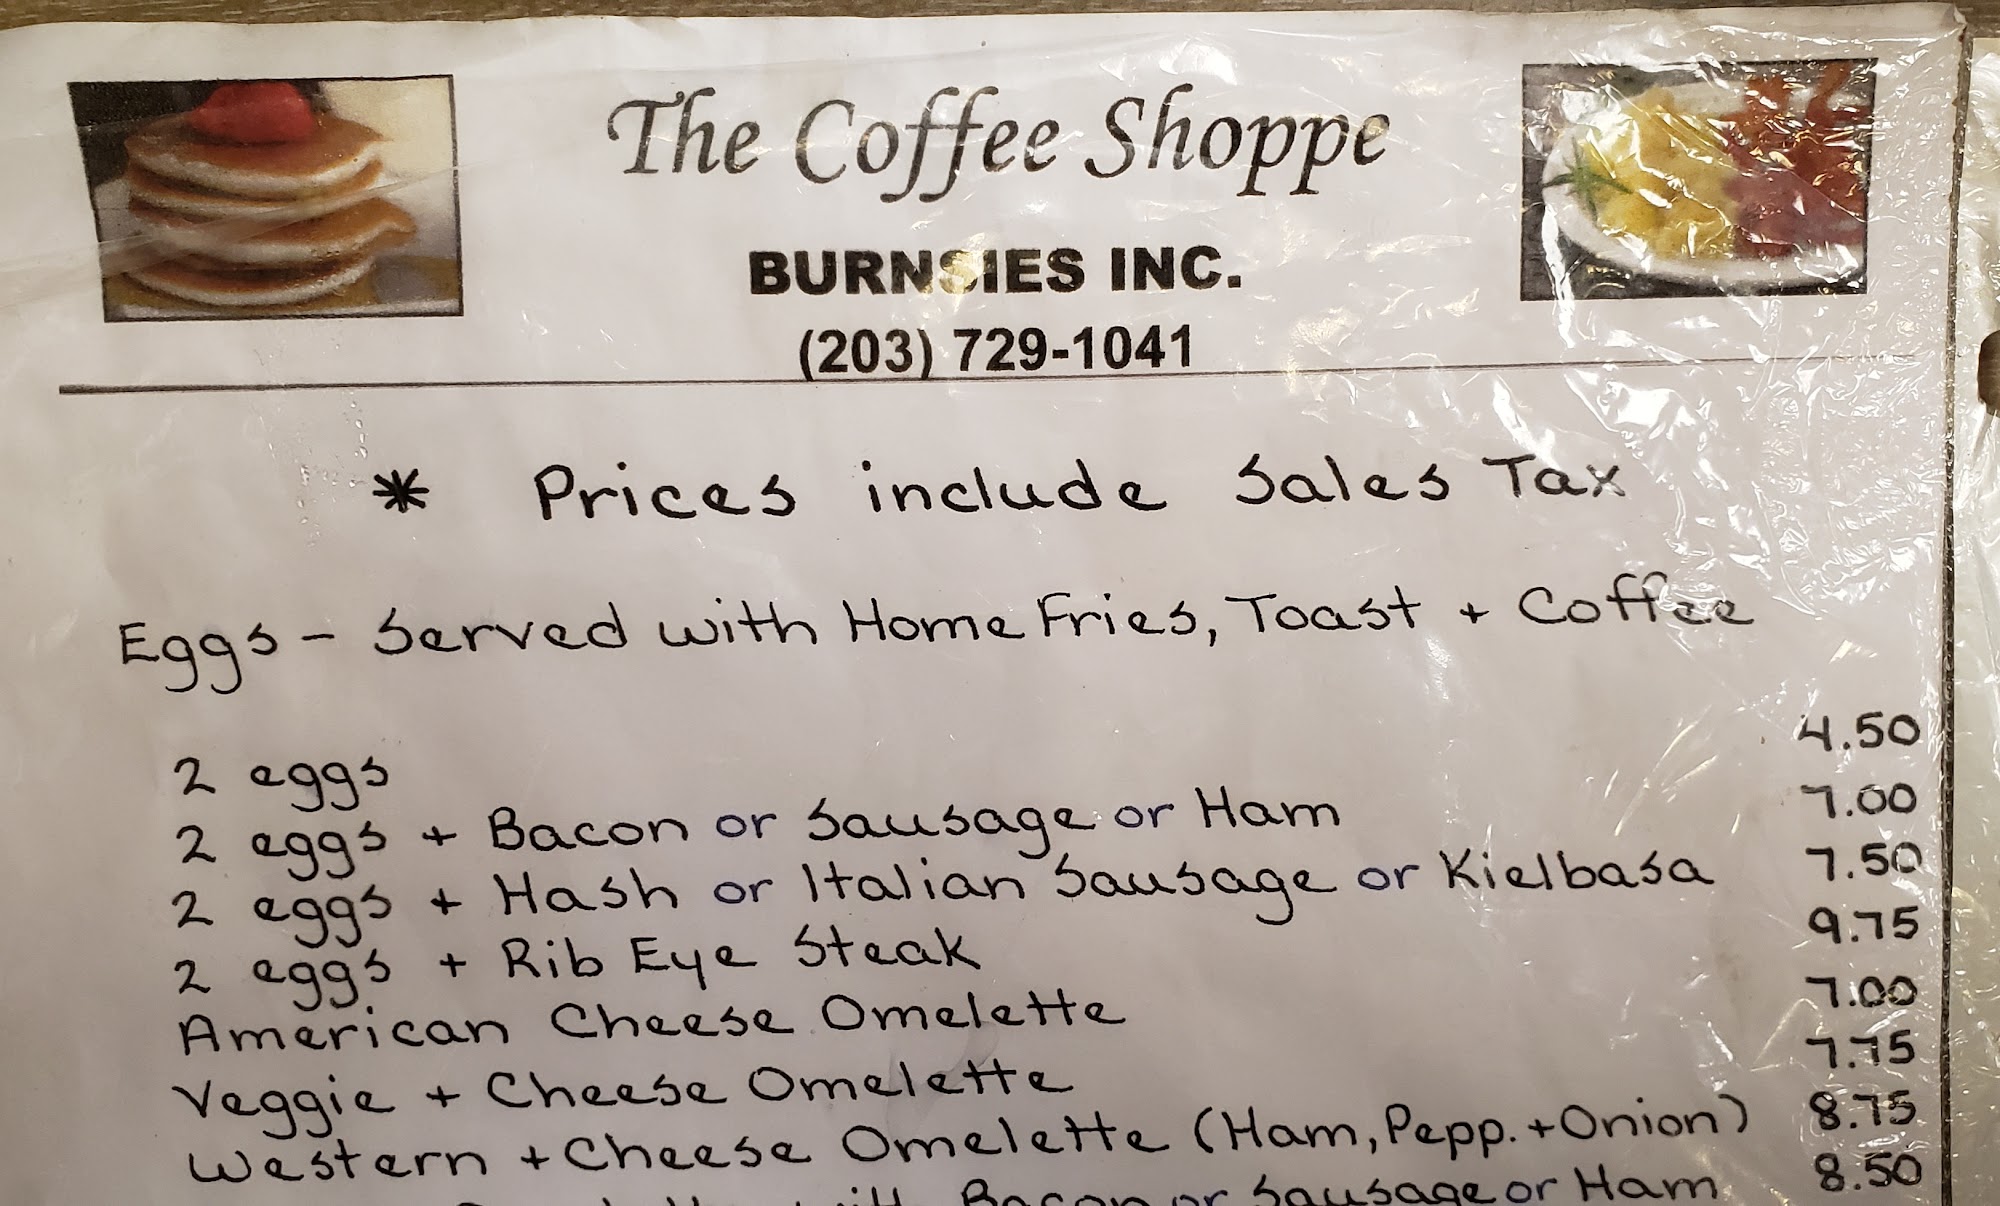 The Coffee Shoppe
BURNSIES INC.
(203) 729-1041
* Prices include Sales Tax
Eggs - Served with Home Fries, Toast + Coffee
2 eggs 4.50
2 eggs + Bacon or Sausage or Ham 7.00
2 eggs + Hash or Italian Sausage or Kielbasa 7.50
2 eggs + Rib Eye Steak 9.75
American Cheese Omelette 7.00
Veggie + Cheese Omelette 7.75
Western + Cheese Omelette (Ham, Pepp. + Onion) 8.75
Bacon or Sausage or Ham 8.50